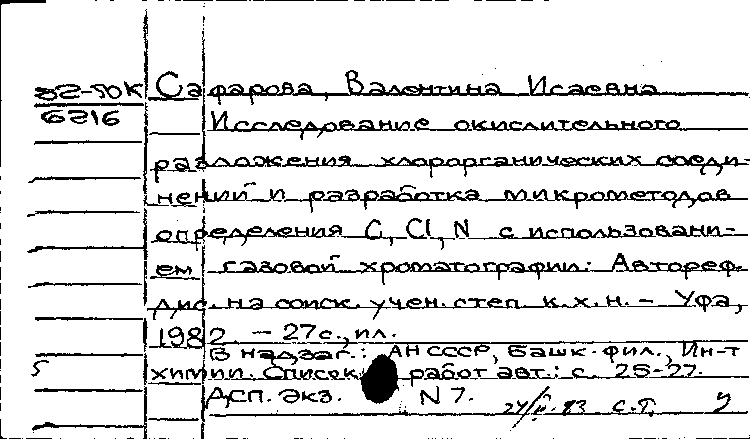 82-ДОК Сафарова, Валентина Исаевна
6216 Исследование окислительного
разложения хлорорганических соеди-
нений и разработка микрометодов
определения C, Cl, N с использовани-
ем газовой хроматографии: Автореф.
дис. на соиск. учен. степ. к.х.н. - Уфа,
1982 - 27с., ил.
В надзаг.: АН СССР, Башк. фил., Ин-т
химии. Список работ авт.: с. 25-27.
ДСП. Экз. N 7.